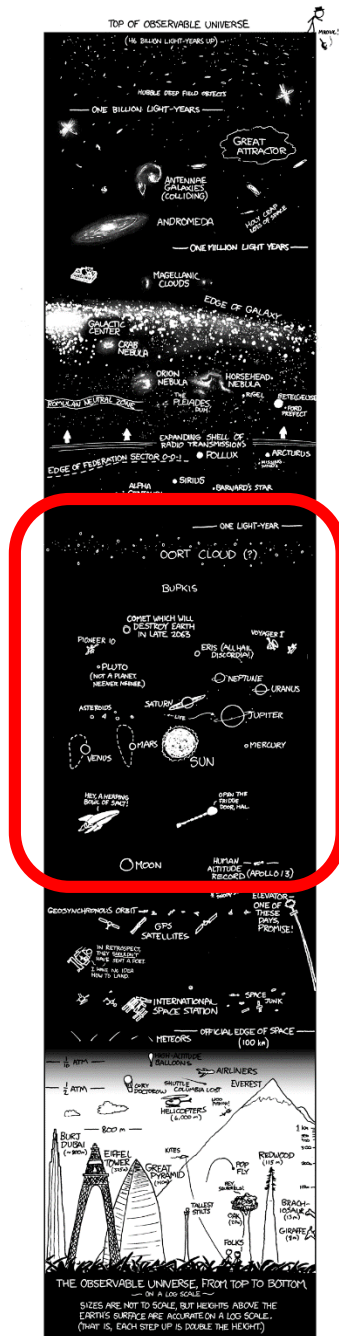 TOP OF OBSERVABLE UNIVERSE
(46 BILLION LIGHT-YEARS UP)
HUBBLE DEEP FIELD OBJECTS
ONE BILLION LIGHT-YEARS
GREAT
ATTRACTOR
ANTENNAE
GALAXIES
(COLLIDING)
ANDROMEDA
HOLY CRAP
LOTS OF SPACE
ONE MILLION LIGHT YEARS
MAGELLANIC
CLOUDS
EDGE OF GALAXY
GALACTIC
CENTER
CRAB
NEBULA
ORION
NEBULA
HORSEHEAD
NEBULA
ROMULAN NEUTRAL ZONE
THE
PLEIADES
DUH.
RIGEL
BETELGEUSE
FORD
PREFECT
EXPANDING SHELL OF
RADIO TRANSMISSIONS
EDGE OF FEDERATION SECTOR 0-0-1
POLLUX
ARCTURUS
SIRIUS
BARNARD'S STAR
ALPHA
ONE LIGHT-YEAR
OORT CLOUD (?)
BUPKIS
COMET WHICH WILL
DESTROY EARTH
IN LATE 2063
PIONEER 10
ERIS (ALL HAIL
DISCORDIA!)
VOYAGER I
PLUTO
(NOT A PLANET.
NEENER NEENER)
NEPTUNE
URANUS
SATURN
ASTEROIDS
JUPITER
VENUS
MARS
SUN
MERCURY
HEY, A HEAPING
BOWL OF SALT!
OPEN THE
FRIDGE
DOOR, HAL.
MOON
HUMAN
ALTITUDE
RECORD (APOLLO 13)
GEOSYNCHRONOUS ORBIT
GPS
SATELLITES
ELEVATOR—
ONE OF
THESE
DAYS,
PROMISE!
IN RETROSPECT,
THEY SHOULDN'T
HAVE SENT A POET.
I HAVE NO IDEA
HOW TO LAND.
INTERNATIONAL
SPACE STATION
SPACE
JUNK
METEORS
OFFICIAL EDGE OF SPACE
(100 km)
HIGH-ALTITUDE
BALLOONS
1/16 ATM
AIRLINERS
1/2 ATM
CORY
DOCTOROW
SHUTTLE
COLUMBIA LOST
EVEREST
HELICOPTERS
(6,000 m)
800 m
BURJ
DUBAI
EIFFEL
TOWER
GREAT
PYRAMID
KITES
POP
FLY
REDWOOD
(115 m)
TALLEST
STILTS
OAK
FOLKS
BRACH-
IOSAUR
(13 m)
GIRAFFE
THE OBSERVABLE UNIVERSE, FROM TOP TO BOTTOM
ON A LOG SCALE
SIZES ARE NOT TO SCALE, BUT HEIGHTS ABOVE THE
EARTH'S SURFACE ARE ACCURATE ON A LOG SCALE.
(THAT IS, EACH STEP UP IS DOUBLE THE HEIGHT.)